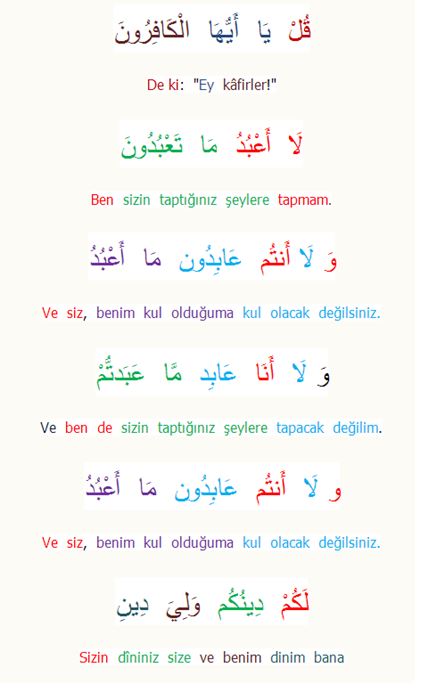 قُلْ يَا أَيُّهَا الْكَافِرُونَ
De ki: "Ey kâfirler!"
لَا أَعْبُدُ مَا تَعْبُدُونَ
Ben sizin taptığınız şeylere tapmam.
وَ لَا أَنتُم عَابِدُون مَا أَعْبُدُ
Ve siz, benim kul olduğuma kul olacak değilsiniz.
وَ لَا أَنَا عَابِد مَّا عَبَدتُّمْ
Ve ben de sizin taptığınız şeylere tapacak değilim.
و لَا أَنتُم عَابِدُون مَا أَعْبُدُ
Ve siz, benim kul olduğuma kul olacak değilsiniz.
لَكُمْ دِينُكُم وَلِيَ دِينِ
Sizin dîniniz size ve benim dinim bana